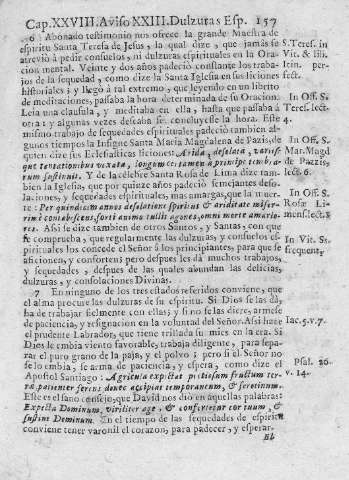 Cap.XXVIII.Aviso XXIII.Dulzuras Esp. 157
6 Abonado testimonio nos ofrece la grande Maestra de
espiritu Santa Teresa de Jesus, la qual dize, que jamàs se
atreviò à pedir consuelos, ni dulzuras espirituales en la Ora-
cion mental. Veinte y dos años padeciò constante los traba-
jos de la sequedad, como dize la Santa Iglesia en sus liciones
historiales; y llegò à tal extremo, que leyendo en un librito
de meditaciones, passaba la hora determinada de su Oracion:
Leìa una clausula, y meditaba en ella, hasta que passaba à
otra: y algunas vezes deseaba se concluyesse la hora. Este
mismo trabajo de sequedades espirituales padeciò tambien al-
gunos tiempos la Insigne Santa Maria Magdalena de Pazzis, de
quien dize sus Eclesiasticas liciones: Arida, desolata, variis-
que tentationibus vexata,
arum sustinuit. Y de la celebre Santa Rosa de Lima dize tam-
bien la Iglesia, que por quinze años padeciò semejantes deso-
laciones, y sequedades espirituales, mas amargas, que la muer-
te: Per quindecim annos desolatione spiritus & ariditate miser-
rimè contabescens, forti animo tulit agones, omni morte amario-
res. Assi lo dize tambien de otros Santos, y Santas, con que
se comprueba, que regularmente las dulzuras, y consuelos es-
pirituales los concede el Señor à los principiantes, para que se
aficionen, y conforten; pero despues les dà muchos trabajos,
y sequedades, despues de las quales abundan las delicias,
dulzuras, y consolaciones Divinas.
7 En ninguno de los tres estados referidos conviene, que
el alma procure las dulzuras de su espiritu. Si Dios se las dà,
ha de trabajar fielmente con ellas; y si no se las diere, armese
de paciencia, y resignacion en la voluntad del Señor. Assi haze
el prudente Labrador, que tiene trillada su mies en la era. Si
Dios le embia viento favorable, trabaja diligente, para sepa-
rar el puro grano de la paja, y el polvo; pero si el Señor no
se lo embia, se arma de paciencia, y espera, como dize el
Apostol Santiago: Agricola expectat pretiosum fructum ter-
ræ, patienter ferens donec accipiat temporaneum, & serotinum.
Este es el sano consejo, que David nos diò en aquellas palabras:
Expecta Dominum, viriliter age, & confortetur cor tuum, &
sustine Dominum. En el tiempo de las sequedades de espiritu
conviene tener varonil el corazon, para padecer, y esperar.
S. Teres. in
Vit. & ili.
litin. per-
fect.
In Off. S.
Teres. lect.
4.
In Off. S.
Mar. Magd
de Pazzis,
lect. 6.
In Off. S.
Rosæ Li-
mens. lect. 5
In Vit. Ss.
frequent.
Iac. 5. v. 7.
Psal. 26.
v. 14.